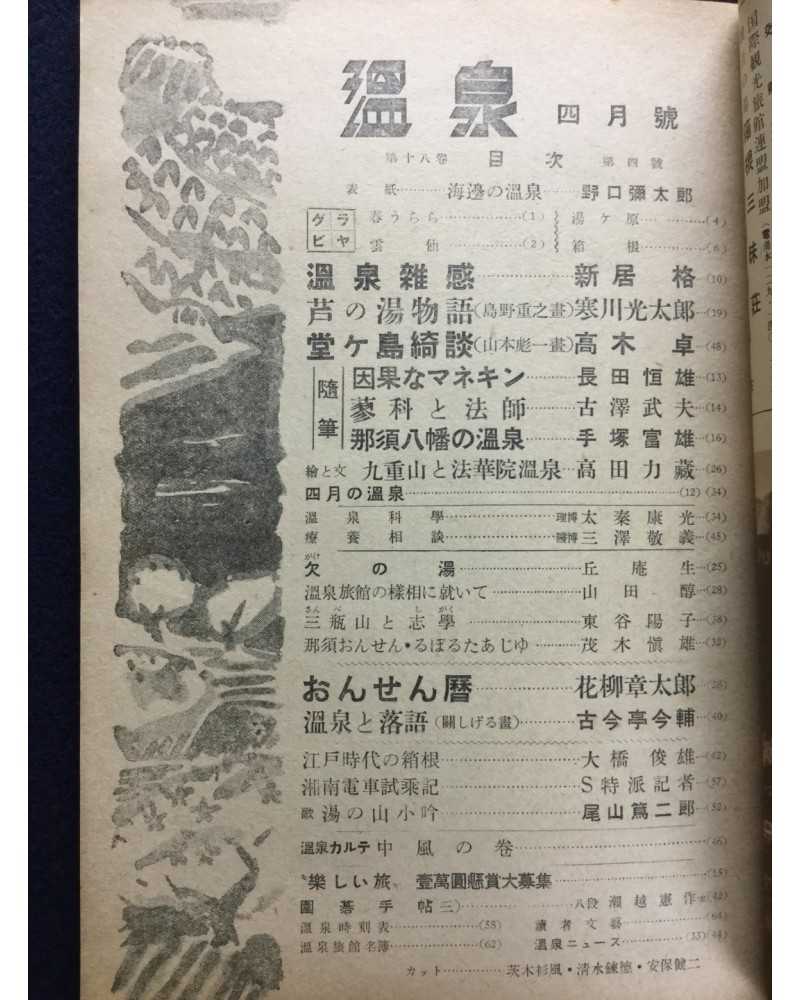 溫泉 四月號
第十八卷 目次 第四號
表紙………海邊の溫泉……野口彌太郎
グラビヤ 春うらら……(1) 湯ヶ原……(4)
雲仙……(2) 箱根……(6)
溫泉雜感……新居格…(10)
芦の湯物語(島野重之畫)寒川光太郎…(19)
堂ヶ島綺談(山本彪一畫)高木卓…(48)
隨筆
因果なマネキン……長田恒雄…(13)
蓼科と法師……古澤武夫…(14)
那須八幡の溫泉……手塚富雄…(16)
繪と文 九重山と法華院溫泉…高田力藏…(26)
四月の溫泉……(12)(34)
溫泉科學……理博 太秦康光…(34)
療養相談……醫博 三澤敬義…(45)
欠の湯……丘庵生…(25)
がけ
溫泉旅館の樣相に就いて……山田醇…(28)
三瓶山と志學……東谷陽子…(38)
さんべ しがく
那須おんせん・るぽるたあじゆ……茂木愼雄…(32)
おんせん曆……花柳章太郎
溫泉と落語(關しげる畫)……古今亭今輔…(40)
江戸時代の箱根……大橋俊雄…(42)
湘南電車試乘記……S特派記者…(57)
歌 湯の山小吟……尾山篤二郎…(52)
溫泉カルテ 中風の卷……(46)
〝樂しい旅〟 壹萬圓懸賞大募集……(15)
圍碁手帖(三)……八段 瀨越憲作…(42)
溫泉時刻表……(58) 讀者文藝……(64)
溫泉旅館名簿……(62) 溫泉ニュース……(33)(44)
カット………茨木杉風・清水錬德・安保健二
国際観光旅館連盟加盟
三昧荘